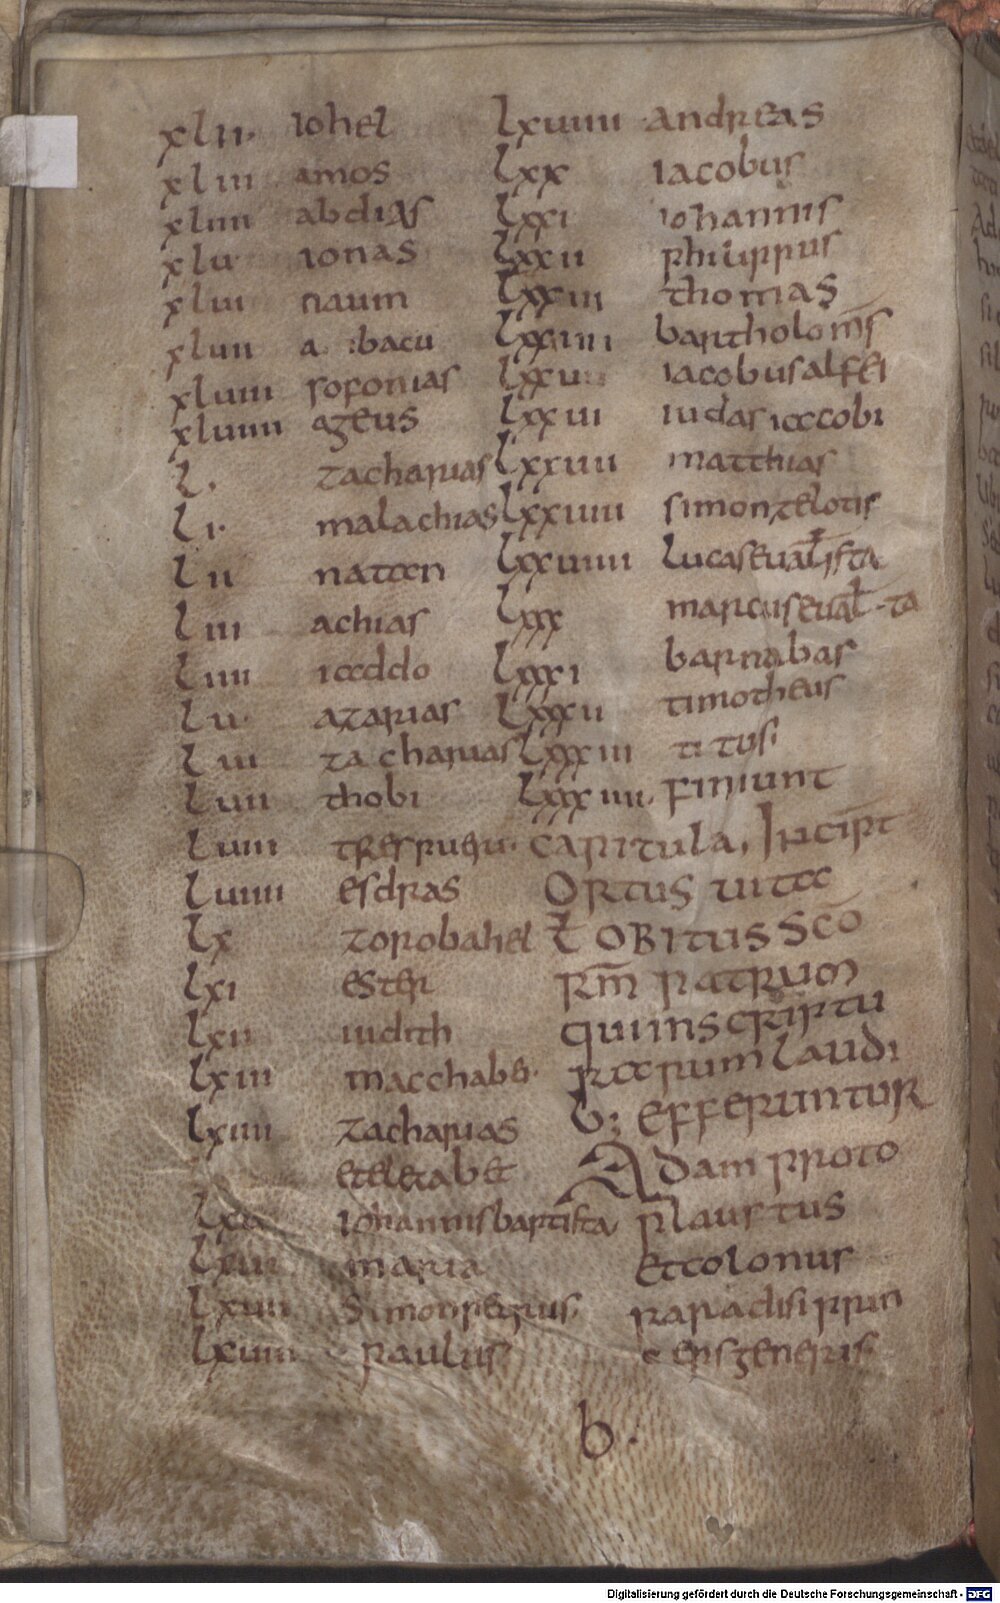 xlii· iohel
xliii amos
xliiii abdias
xlu ionas
xlui naum
xluii a bacu
xluiii sofonias
xluiiii ageus
l. zacharias
li· malachias
lii natan
liii achias
liiii iaddo
lu· azarias
lui zacharias
luii thobi
luiii trespueri·
luiiii esdras
lx zorobabel
lxi ester
lxii iudith
lxiii macchabei·
lxiiii zacharias
et
lxu iohannisbaptista
lxui maria
lxuii Simonpetrus·
lxuiii paulus
lxuiiii andreas
lxx iacobus
lxxi iohannis
lxxii philippus
lxxiii thomas
lxxiiii bartholom̄s
lxxu iacobusalfei
lxxui iudasiacobi
lxxuii matthias
lxxuiii simonzelotis
lxxuiiii lucaseuāl̄ista
lxxx marcuseual̄·ta
lxxxi barnabas
lxxxii timotheus
lxxxiii titus·
lxxxiiii· finiunt
capitula, Incipt
ORTUS uita
ł OBITUS Scō
Rm̄ patrum
quiinscriptu
rarum laudi
b; efferuntur
Adam proto
plaustus
Etcolonus
paradisi prin
cepsgeneris·
b·
Digitalisierung gefördert durch die Deutsche Forschungsgemeinschaft - DFG